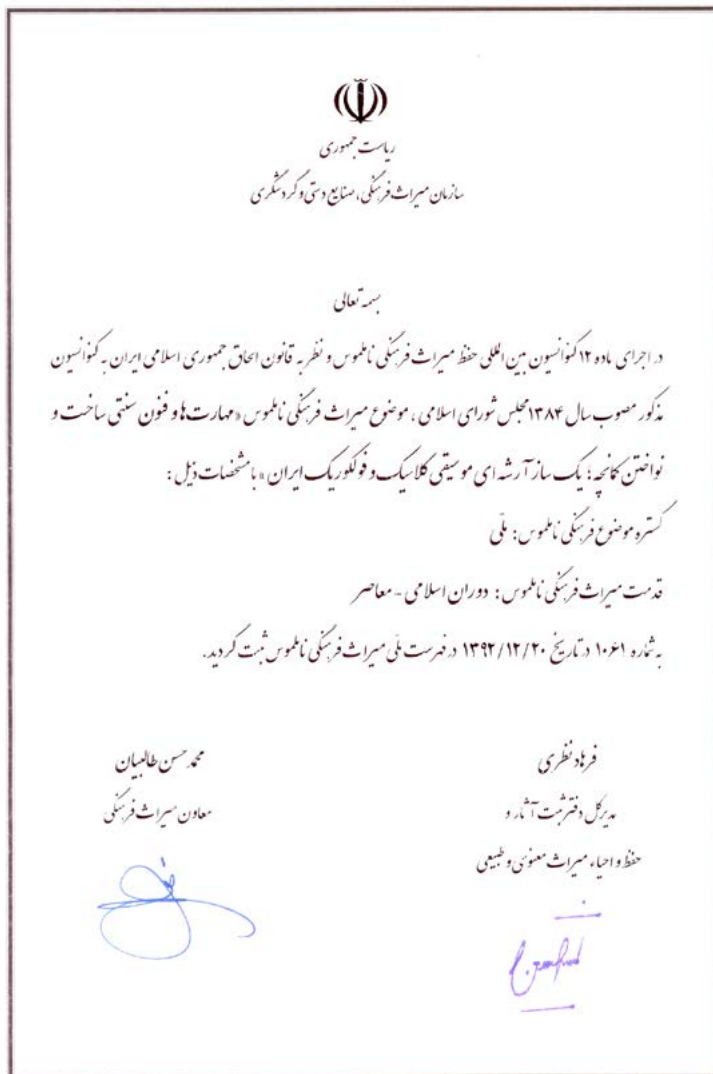 ریاست جمهوری
سازمان میراث فرهنگی، صنایع دستی و گردشگری
بسمه تعالی
در اجرای ماده ۱۲ کنوانسیون بین المللی حفظ میراث فرهنگی ناملموس و نظر به قانون الحاق جمهوری اسلامی ایران به کنوانسیون
مذکور مصوب سال ۱۳۸۴ مجلس شورای اسلامی، موضوع میراث فرهنگی ناملموس «مهارت ها و فنون سنتی ساخت و
نواختن کمانچه؛ یک ساز آرشه ای موسیقی کلاسیک و فولکوریک ایران» با مشخصات ذیل:
گستره موضوع فرهنگی ناملموس: ملّی
قدمت میراث فرهنگی ناملموس: دوران اسلامی - معاصر
به شماره ۱۰۶۱ در تاریخ ۱۳۹۲/۱۲/۲۰ در فهرست ملّی میراث فرهنگی ناملموس ثبت گردید.
فرهاد نظری
مدیرکل دفتر ثبت آثار و
حفظ و احیاء میراث معنوی و طبیعی
محمد حسن طالبیان
معاون میراث فرهنگی